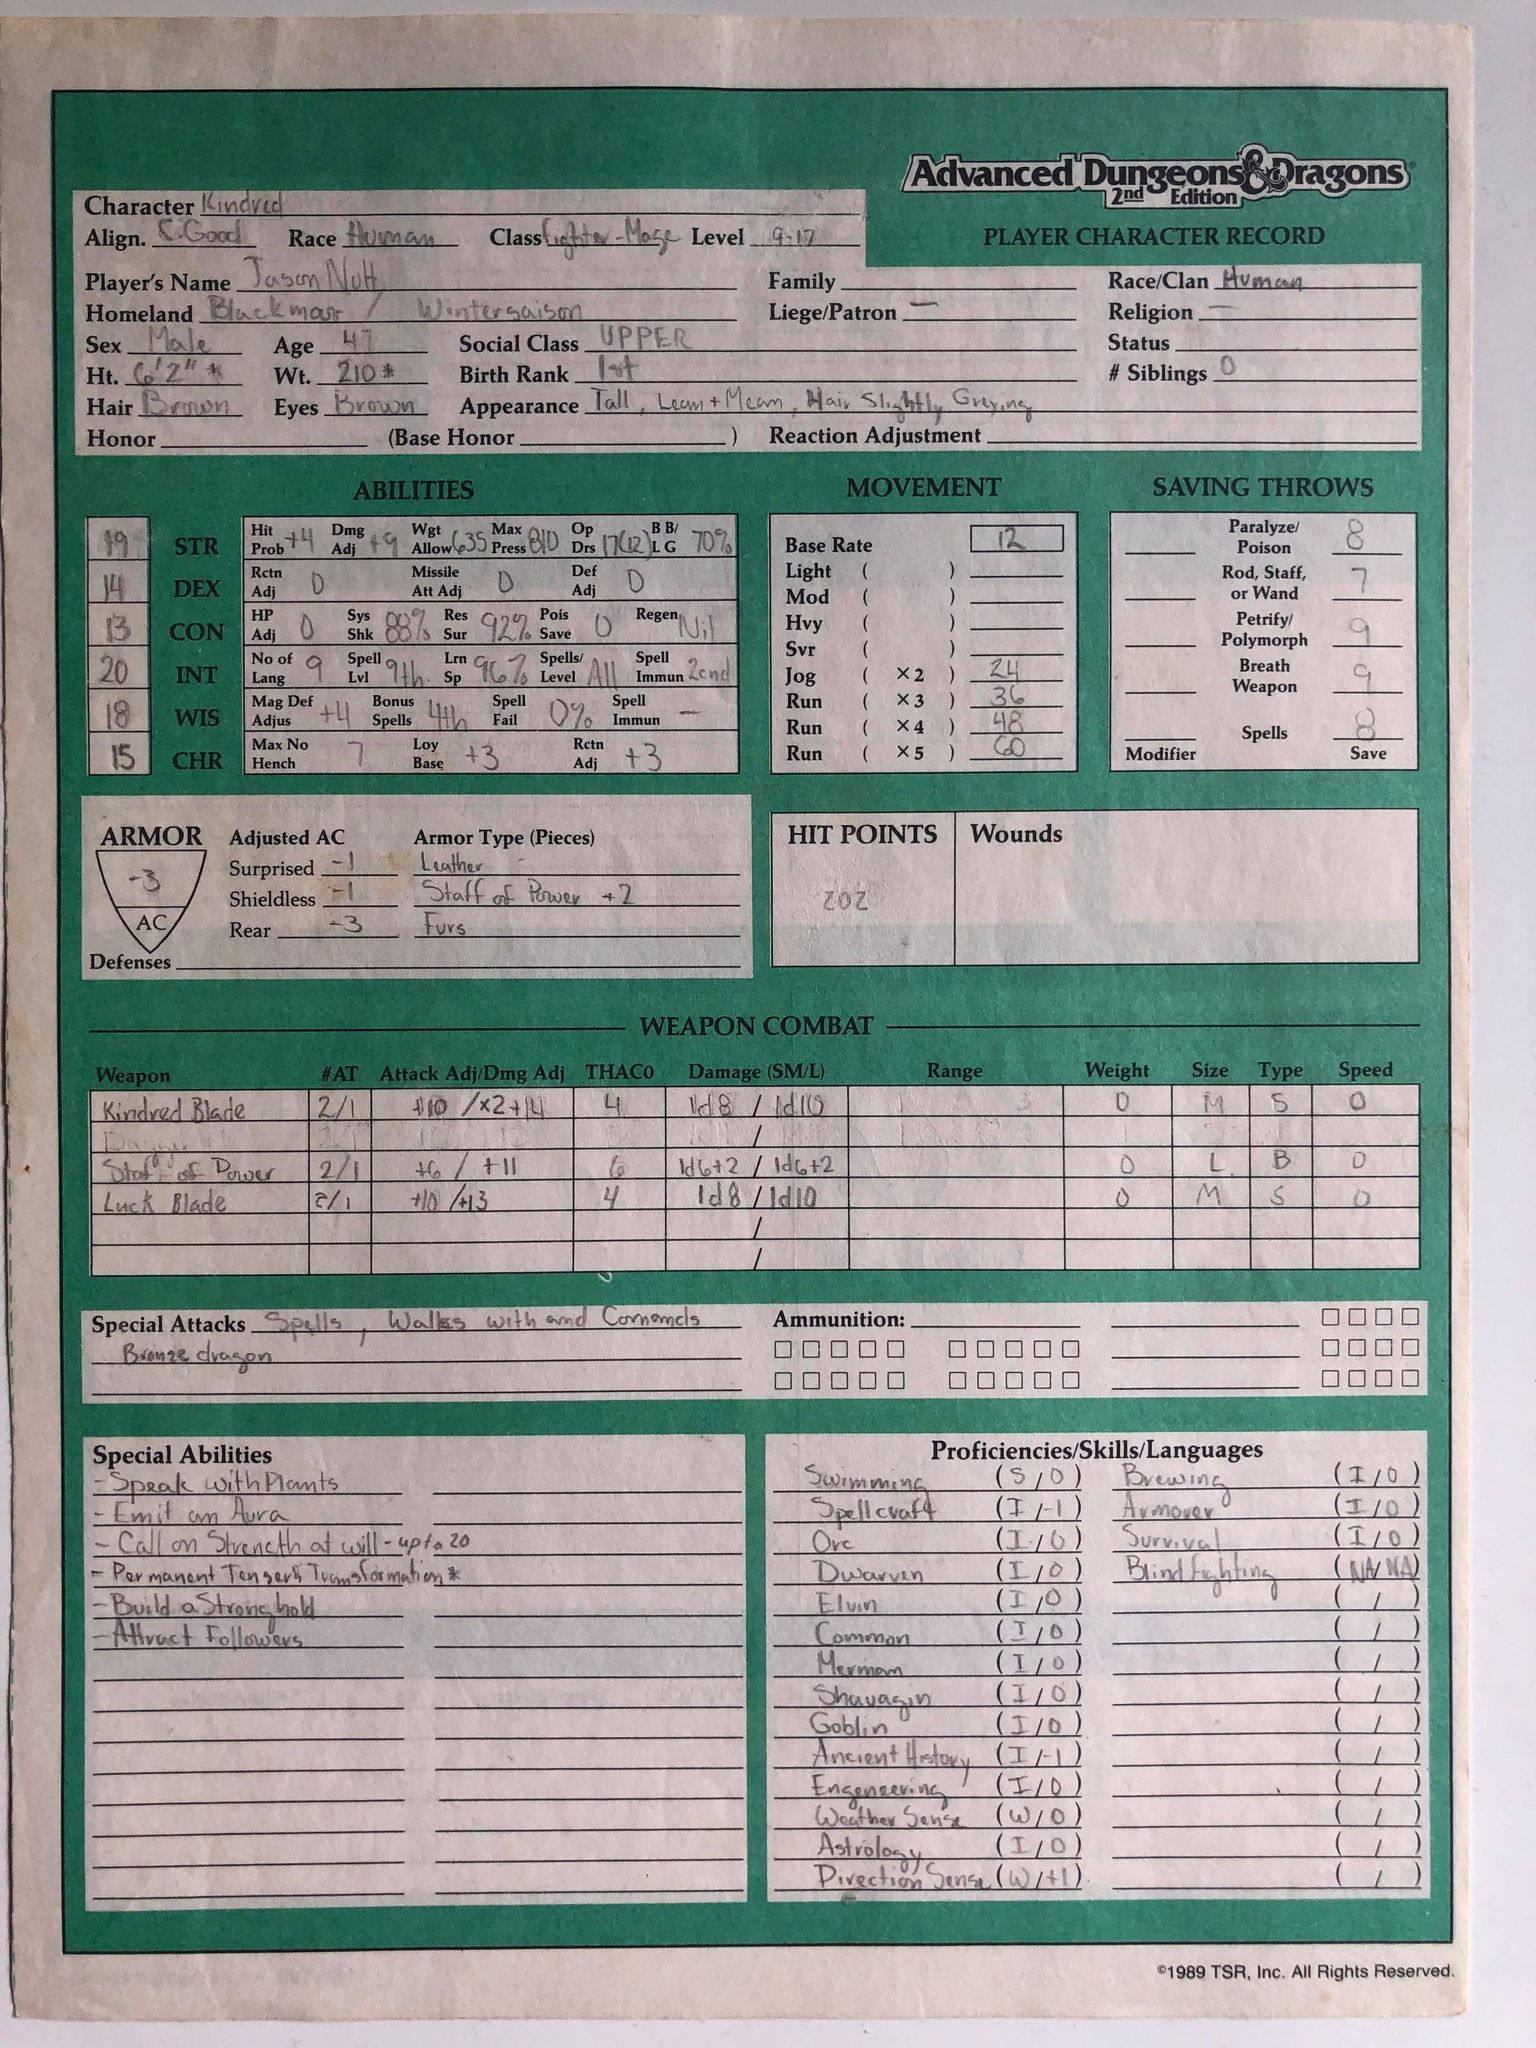 Advanced Dungeons & Dragons®
2nd Edition
PLAYER CHARACTER RECORD
Character Kindred
Align. C. Good Race Human Class Fighter-Mage Level 9-17
Player's Name Jason Nutt Family Race/Clan Human
Homeland Blackmoor / Wintersaison Liege/Patron — Religion —
Sex Male Age 47 Social Class UPPER Status
Ht. 6'2" * Wt. 210* Birth Rank 1st # Siblings 0
Hair Brown Eyes Brown Appearance Tall, Lean + Mean, Hair Slightly Greying
Honor (Base Honor ) Reaction Adjustment
ABILITIES
19 STR Hit Prob +4 Dmg Adj +9 Wgt Allow 635 Max Press 810 Op Drs 17(12) B B/ L G 70%
14 DEX Rctn Adj 0 Missile Att Adj 0 Def Adj 0
13 CON HP Adj 0 Sys Shk 88% Res Sur 92% Pois Save 0 Regen Nil
20 INT No of Lang 9 Spell Lvl 9th Lrn Sp 96% Spells/ Level All Spell Immun 2cnd
18 WIS Mag Def Adjus +4 Bonus Spells 4th Spell Fail 0% Spell Immun —
15 CHR Max No Hench 7 Loy Base +3 Rctn Adj +3
MOVEMENT
Base Rate 12
Light ( )
Mod ( )
Hvy ( )
Svr ( )
Jog ( ×2 ) 24
Run ( ×3 ) 36
Run ( ×4 ) 48
Run ( ×5 ) 60
SAVING THROWS
Paralyze/ Poison 8
Rod, Staff, or Wand 7
Petrify/ Polymorph 9
Breath Weapon 9
Spells 8
Modifier Save
ARMOR Adjusted AC Armor Type (Pieces)
-3 AC
Surprised -1 Leather
Shieldless -1 Staff of Power +2
Rear -3 Furs
Defenses
HIT POINTS Wounds
202
WEAPON COMBAT
Weapon #AT Attack Adj/Dmg Adj THAC0 Damage (SM/L) Range Weight Size Type Speed
Kindred Blade 2/1 +10 /x2+14 4 1d8 / 1d10 0 M S 0
/
Staff of Power 2/1 +6 / +11 6 1d6+2 / 1d6+2 0 L B 0
Luck Blade 2/1 +10 /+13 4 1d8 / 1d10 0 M S 0
/
/
Special Attacks Spells, Walks with and Comands
Bronze dragon
Ammunition:
Special Abilities
- Speak with Plants
- Emit an Aura
- Call on Strength at will - up to 20
- Permanent Tenser's Transformation *
- Build a Stronghold
- Attract Followers
Proficiencies/Skills/Languages
Swimming (S/0) Brewing (I/0)
Spellcraft (I/-1) Armorer (I/0)
Orc (I/0) Survival (I/0)
Dwarven (I/0) Blindfighting (NA/NA)
Elvin (I/0) ( / )
Common (I/0) ( / )
Merman (I/0) ( / )
Shauagin (I/0) ( / )
Goblin (I/0) ( / )
Ancient History (I/-1) ( / )
Engeneering (I/0) ( / )
Weather Sense (W/0) ( / )
Astrology (I/0) ( / )
Direction Sense (W/+1) ( / )
©1989 TSR, Inc. All Rights Reserved.